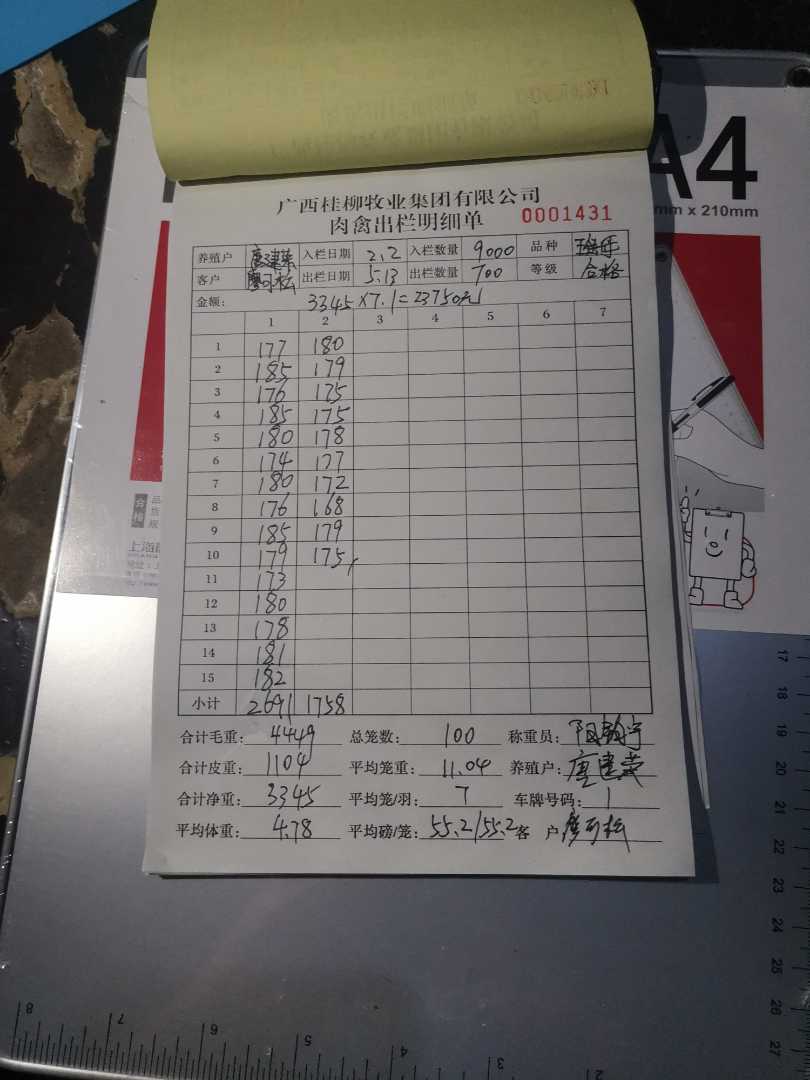 A4
mm x 210mm
广西桂柳牧业集团有限公司
肉禽出栏明细单 0001431
养殖户 唐建荣 入栏日期 2.2 入栏数量 9000 品种
客户 廖可松 出栏日期 5.13 出栏数量 700 等级 合格
金额: 3345×7.1=23750元
1 2 3 4 5 6 7
1 177 180
2 185 179
3 176 175
4 185 175
5 180 178
6 174 177
7 180 172
8 176 168
9 185 179
10 179 175
11 173
12 180
13 178
14 181
15 182
小计 2691 1758
合计毛重: 4449 总笼数: 100 称重员:
合计皮重: 1104 平均笼重: 11.04 养殖户: 唐建荣
合计净重: 3345 平均笼/羽: 7 车牌号码: 1
平均体重: 4.78 平均磅/笼: 55.2/55.2 客 户 廖可松
合格
上海
17
18
19
20
21
22
23
24
25
26
27
8 7 6 5 4 3 2